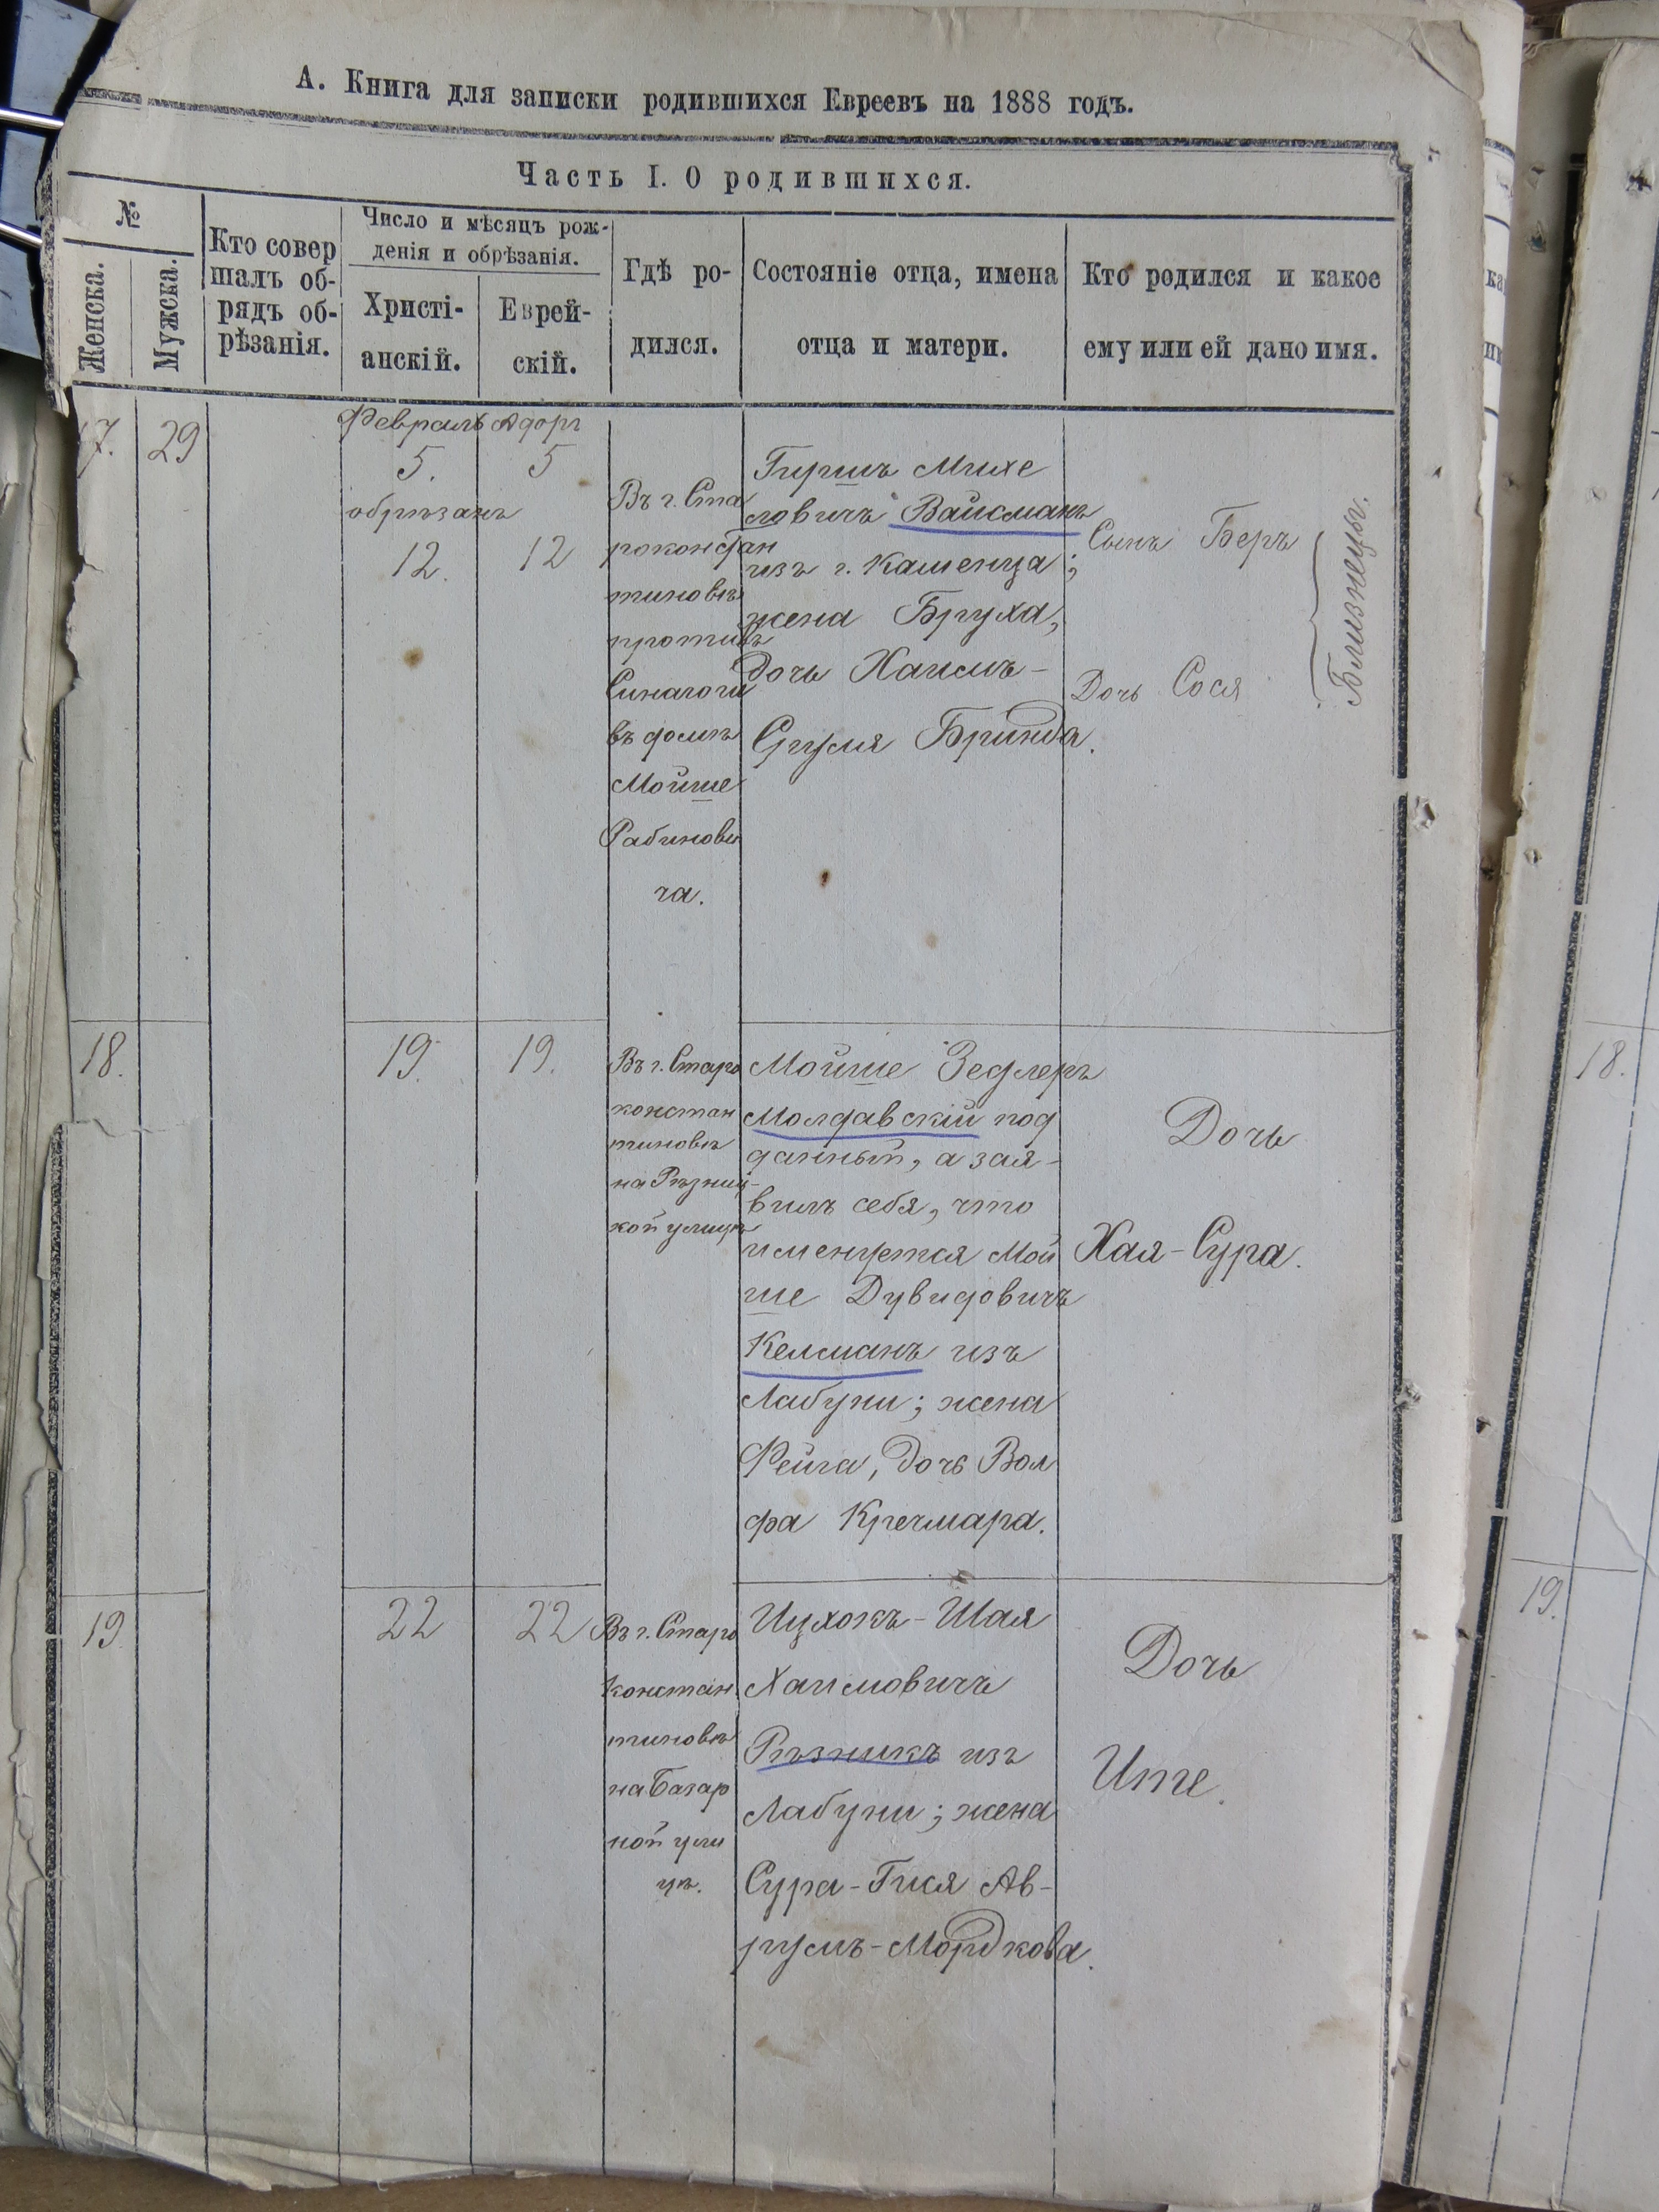 А. Книга для записки родившихся Евреевъ на 1888 годъ.
Часть I. О родившихся.
№
Женска.
Мужска.
Кто совер
шалъ об-
рядъ об-
рѣзанія.
Число и мѣсяцъ рож-
денія и обрѣзанія.
Христі-
анскій.
Еврей-
скій.
Гдѣ ро-
дился.
Состояніе отца, имена
отца и матери.
Кто родился и какое
ему или ей дано имя.
17.
29
Февраль
5.
обрѣзанъ
12.
Адоръ
5
12
Въ г. Ста
роконстан
тиновѣ
противъ
Синагоги
въ домѣ
Мойше
Рабинови
ча.
Гиршъ Михе
ловичъ Вайсманъ
изъ г. Каменца;
жена Бруха,
дочь Хаимъ-
Сруля Бринда.
Сынъ Беръ
Дочь Сося
Близнецы.
18.
19.
19.
Въ г. Старо
констан
тиновѣ
на Рѣзниц-
кой улицѣ
Мойше Зедлеръ
Молдавскій под
данный, а зая-
вилъ себя, что
именуется Мой
ше Дувидовичъ
Келманъ изъ
Лабуни; жена
Фейга, дочь Вол
фа Кречмара.
Дочь
Хая-Сура.
19.
22
22
Въ г. Старо
констан
тиновѣ
на Базар
ной ули
цѣ.
Ицхокъ-Шая
Хаимовичъ
Рѣзникъ изъ
Лабуни; жена
Сура-Гися Ав-
румъ-Мордкова.
Дочь
Ите.
18.
19.